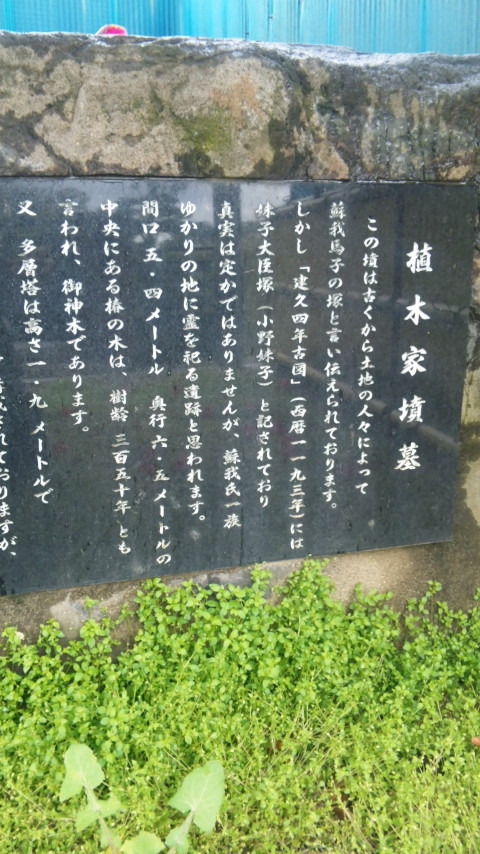 植木家墳墓
この墳は古くから土地の人々によって
蘇我馬子の塚と言い伝えられております。
しかし「建久四年古図」(西暦一一九三年)には
妹子大臣塚(小野妹子)と記されており
真実は定かではありませんが、蘇我氏一族
ゆかりの地に霊を祀る遺跡と思われます。
間口 五・四メートル 奥行 六・五メートルの
中央にある椿の木は、樹齢 三百五十年 とも
言われ、御神木であります。
又 多層塔は高さ一・九 メートルで
成されておりますが、